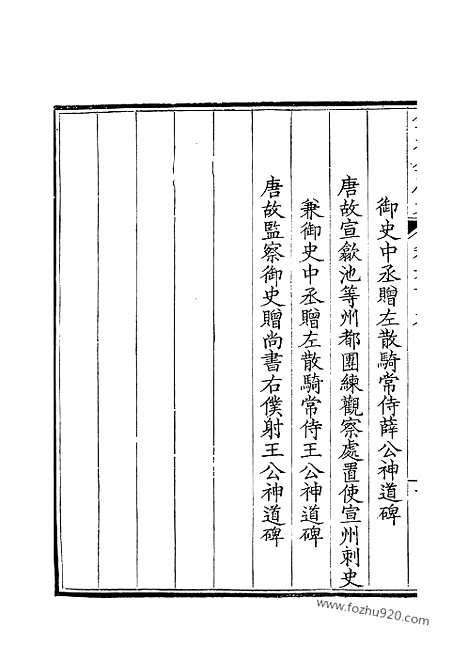 御史中丞贈左散騎常侍薛公神道碑
唐故宣歙池等州都團練觀察處置使宣州刺史
兼御史中丞贈左散騎常侍王公神道碑
唐故監察御史贈尚書右僕射王公神道碑
www.fozhu920.com